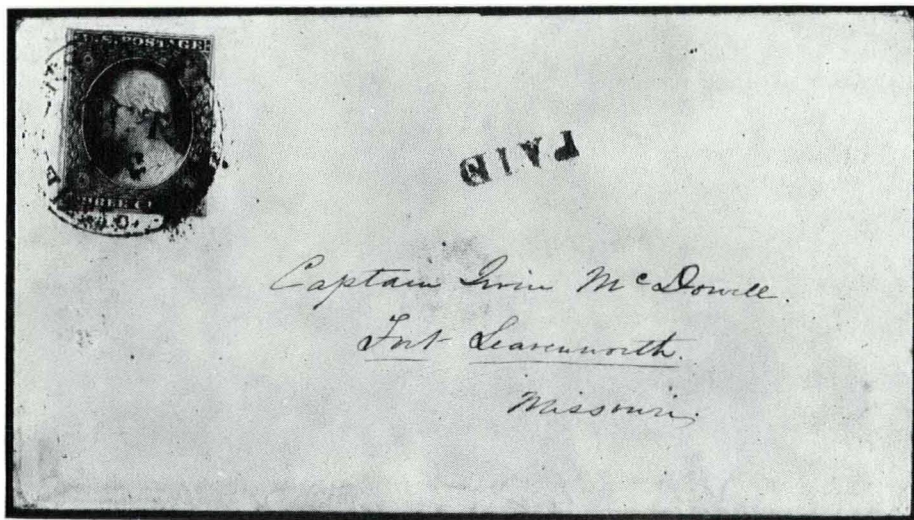 U.S. POSTAGE
THREE C
PAID
Captain Irvin McDowell.
Fort Leavenworth.
Missouri